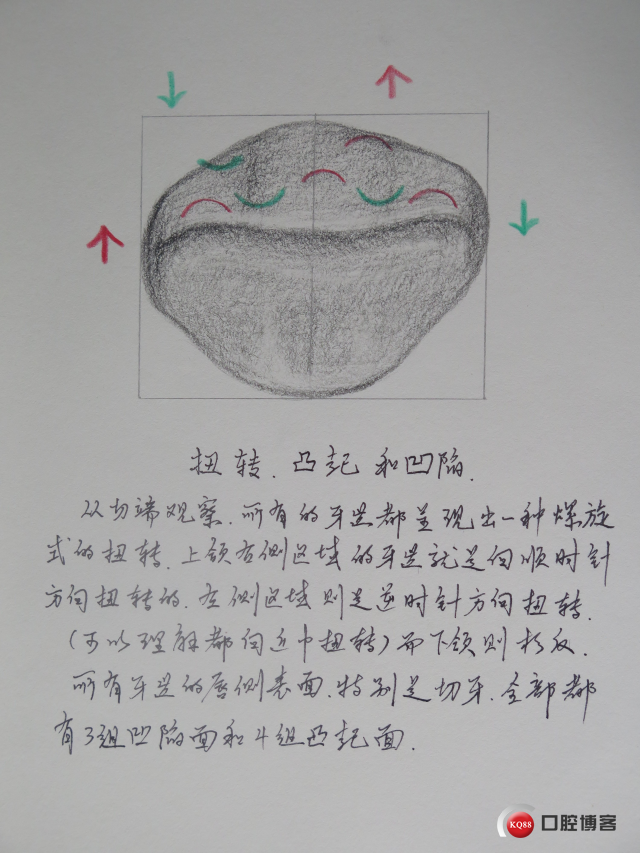 扭转.凸起和凹陷.
从切端观察.所有的牙是都呈现出一种螺旋
式的扭转.上颌右侧区域的牙是就是向顺时针
方向扭转的.左侧区域则是逆时针方向扭转.
(可以理解都向近中扭转)而下颌则相反.
所有牙是的唇侧表面.特别是切牙.全部都
有3组凹陷面和4组凸起面.
KQ88 口腔博客